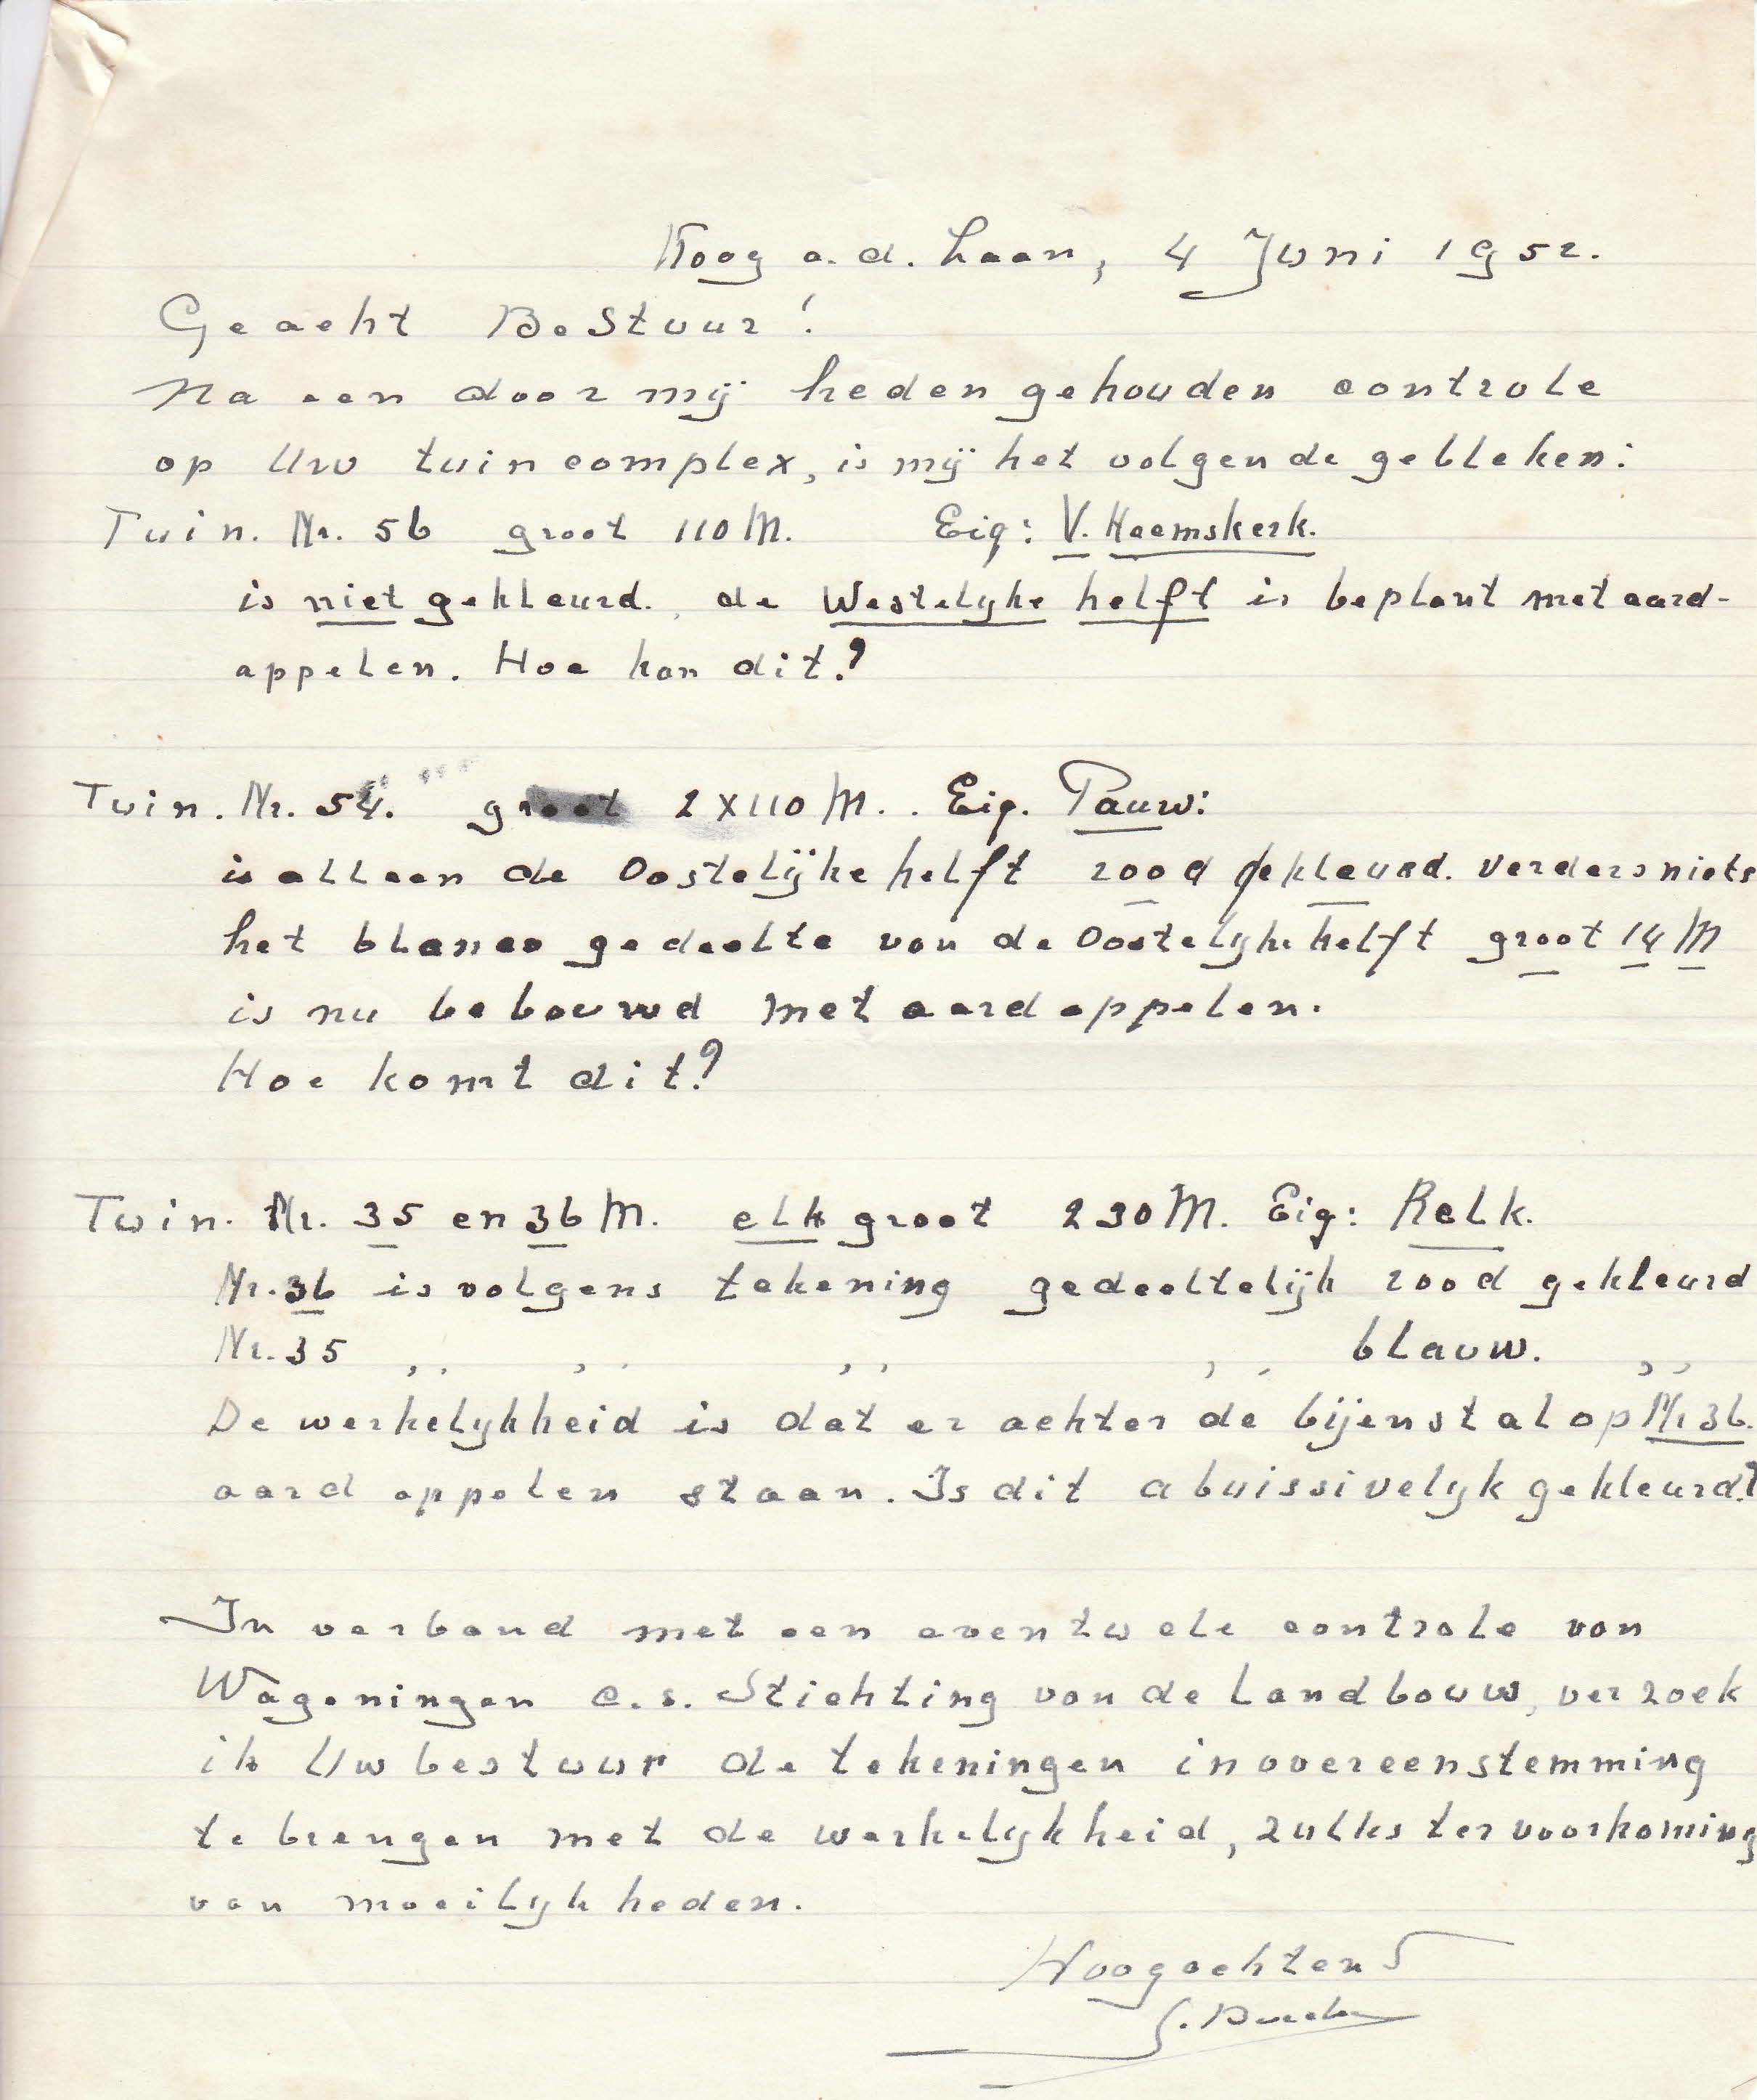 Koog a. d. Zaan, 4 Juni 1952.
Geacht Bestuur!
Na een door mij heden gehouden controle
op Uw tuincomplex, is mij het volgende gebleken:
Tuin. Nr. 56 groot 110 M. Eig: V. Heemskerk.
is niet gekleurd. de Westelijke helft is beplant met aard-
appelen. Hoe kan dit?
Tuin. Nr. 54. groot 2 x 110 M. . Eig. Pauw:
is alleen de Oostelijke helft rood gekleurd. verders niets
het blanco gedeelte van de Oostelijke helft groot 14 M
is nu bebouwd met aardappelen.
Hoe komt dit?
Tuin. Nr. 35 en 36 M. elk groot 230 M. Eig: Relk.
Nr. 36 is volgens tekening gedeeltelijk rood gekleurd
Nr. 35 ,, ,, ,, ,, blauw. ,,
De werkelijkheid is dat er achter de bijenstal op Nr 36.
aardappelen staan. Is dit abuissivelijk gekleurd?
In verband met een eventuele controle van
Wageningen c.s. Stichting van de Landbouw, verzoek
ik Uw bestuur de tekeningen in overeenstemming
te brengen met de werkelijkheid, zulks ter voorkoming
van moeilijkheden.
Hoogachtend